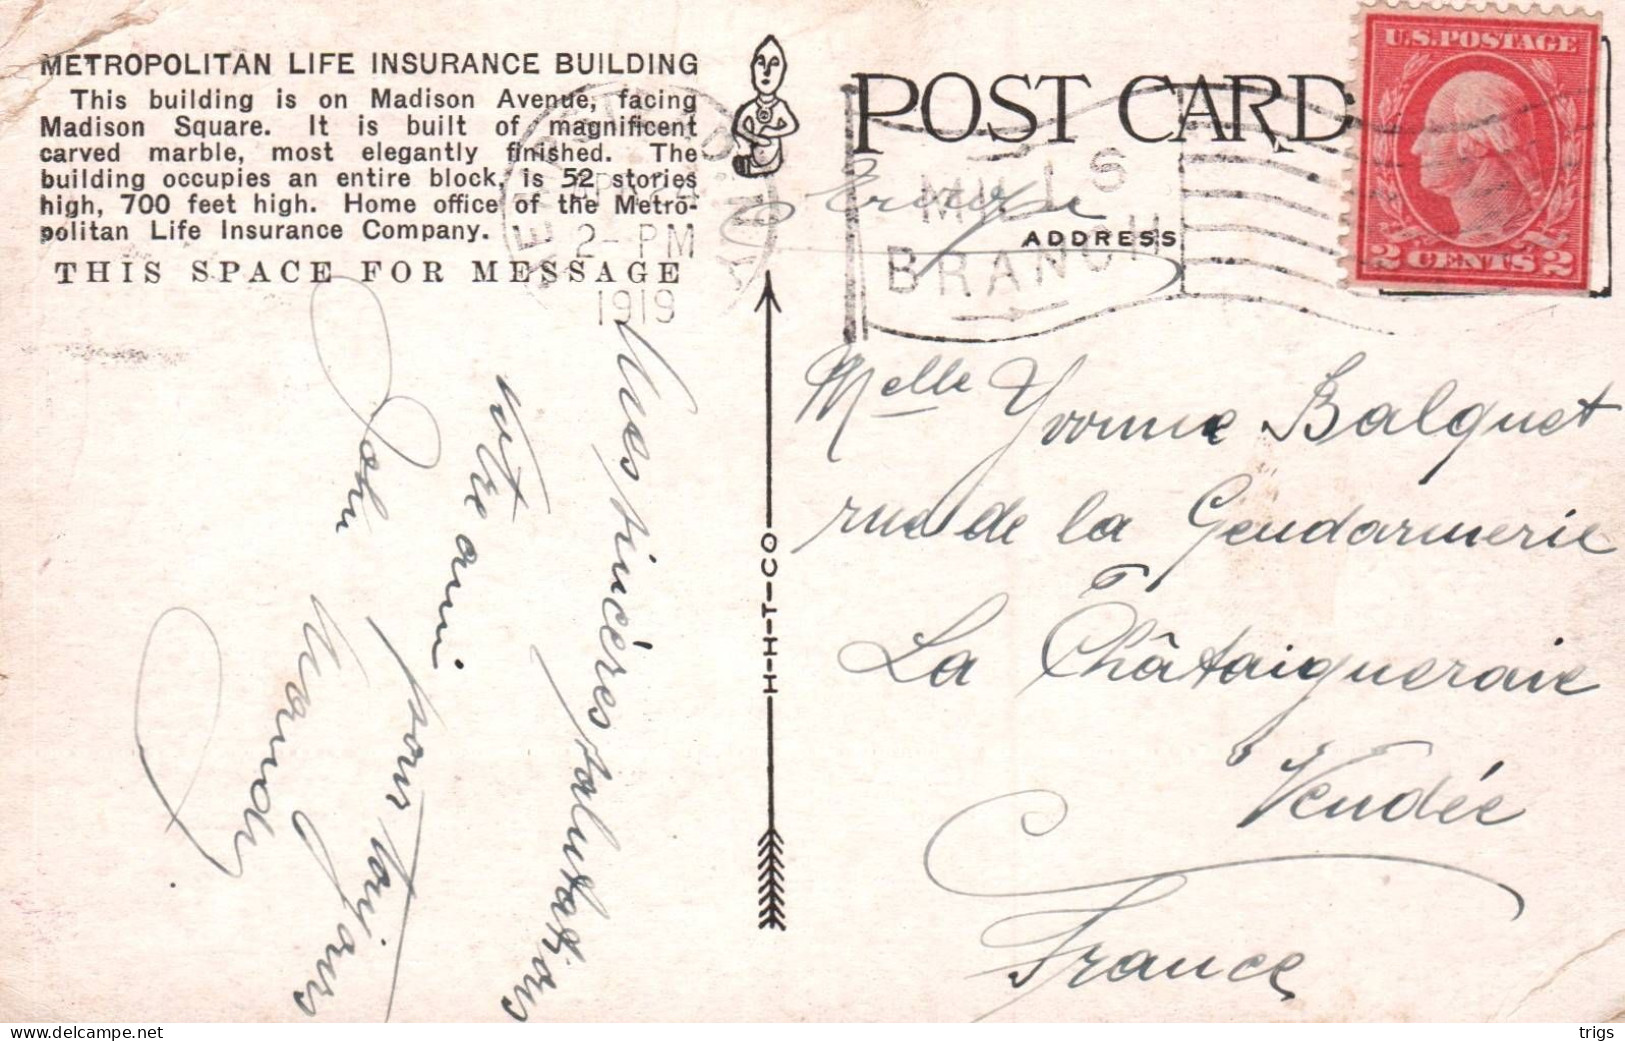 METROPOLITAN LIFE INSURANCE BUILDING
This building is on Madison Avenue, facing
Madison Square. It is built of magnificent
carved marble, most elegantly finished. The
building occupies an entire block, is 52 stories
high, 700 feet high. Home office of the Metro-
politan Life Insurance Company.
THIS SPACE FOR MESSAGE
2-PM
1919
POST CARD
ADDRESS
MILLS
BRANCH
U.S. POSTAGE
2 CENTS 2
H-H-T-CO
Mes sincères salutations
votre ami pour toujours
John
Melle Yvonne Balquet
rue de la Gendarmerie
La Châtaigneraie
Vendée
France
trigs